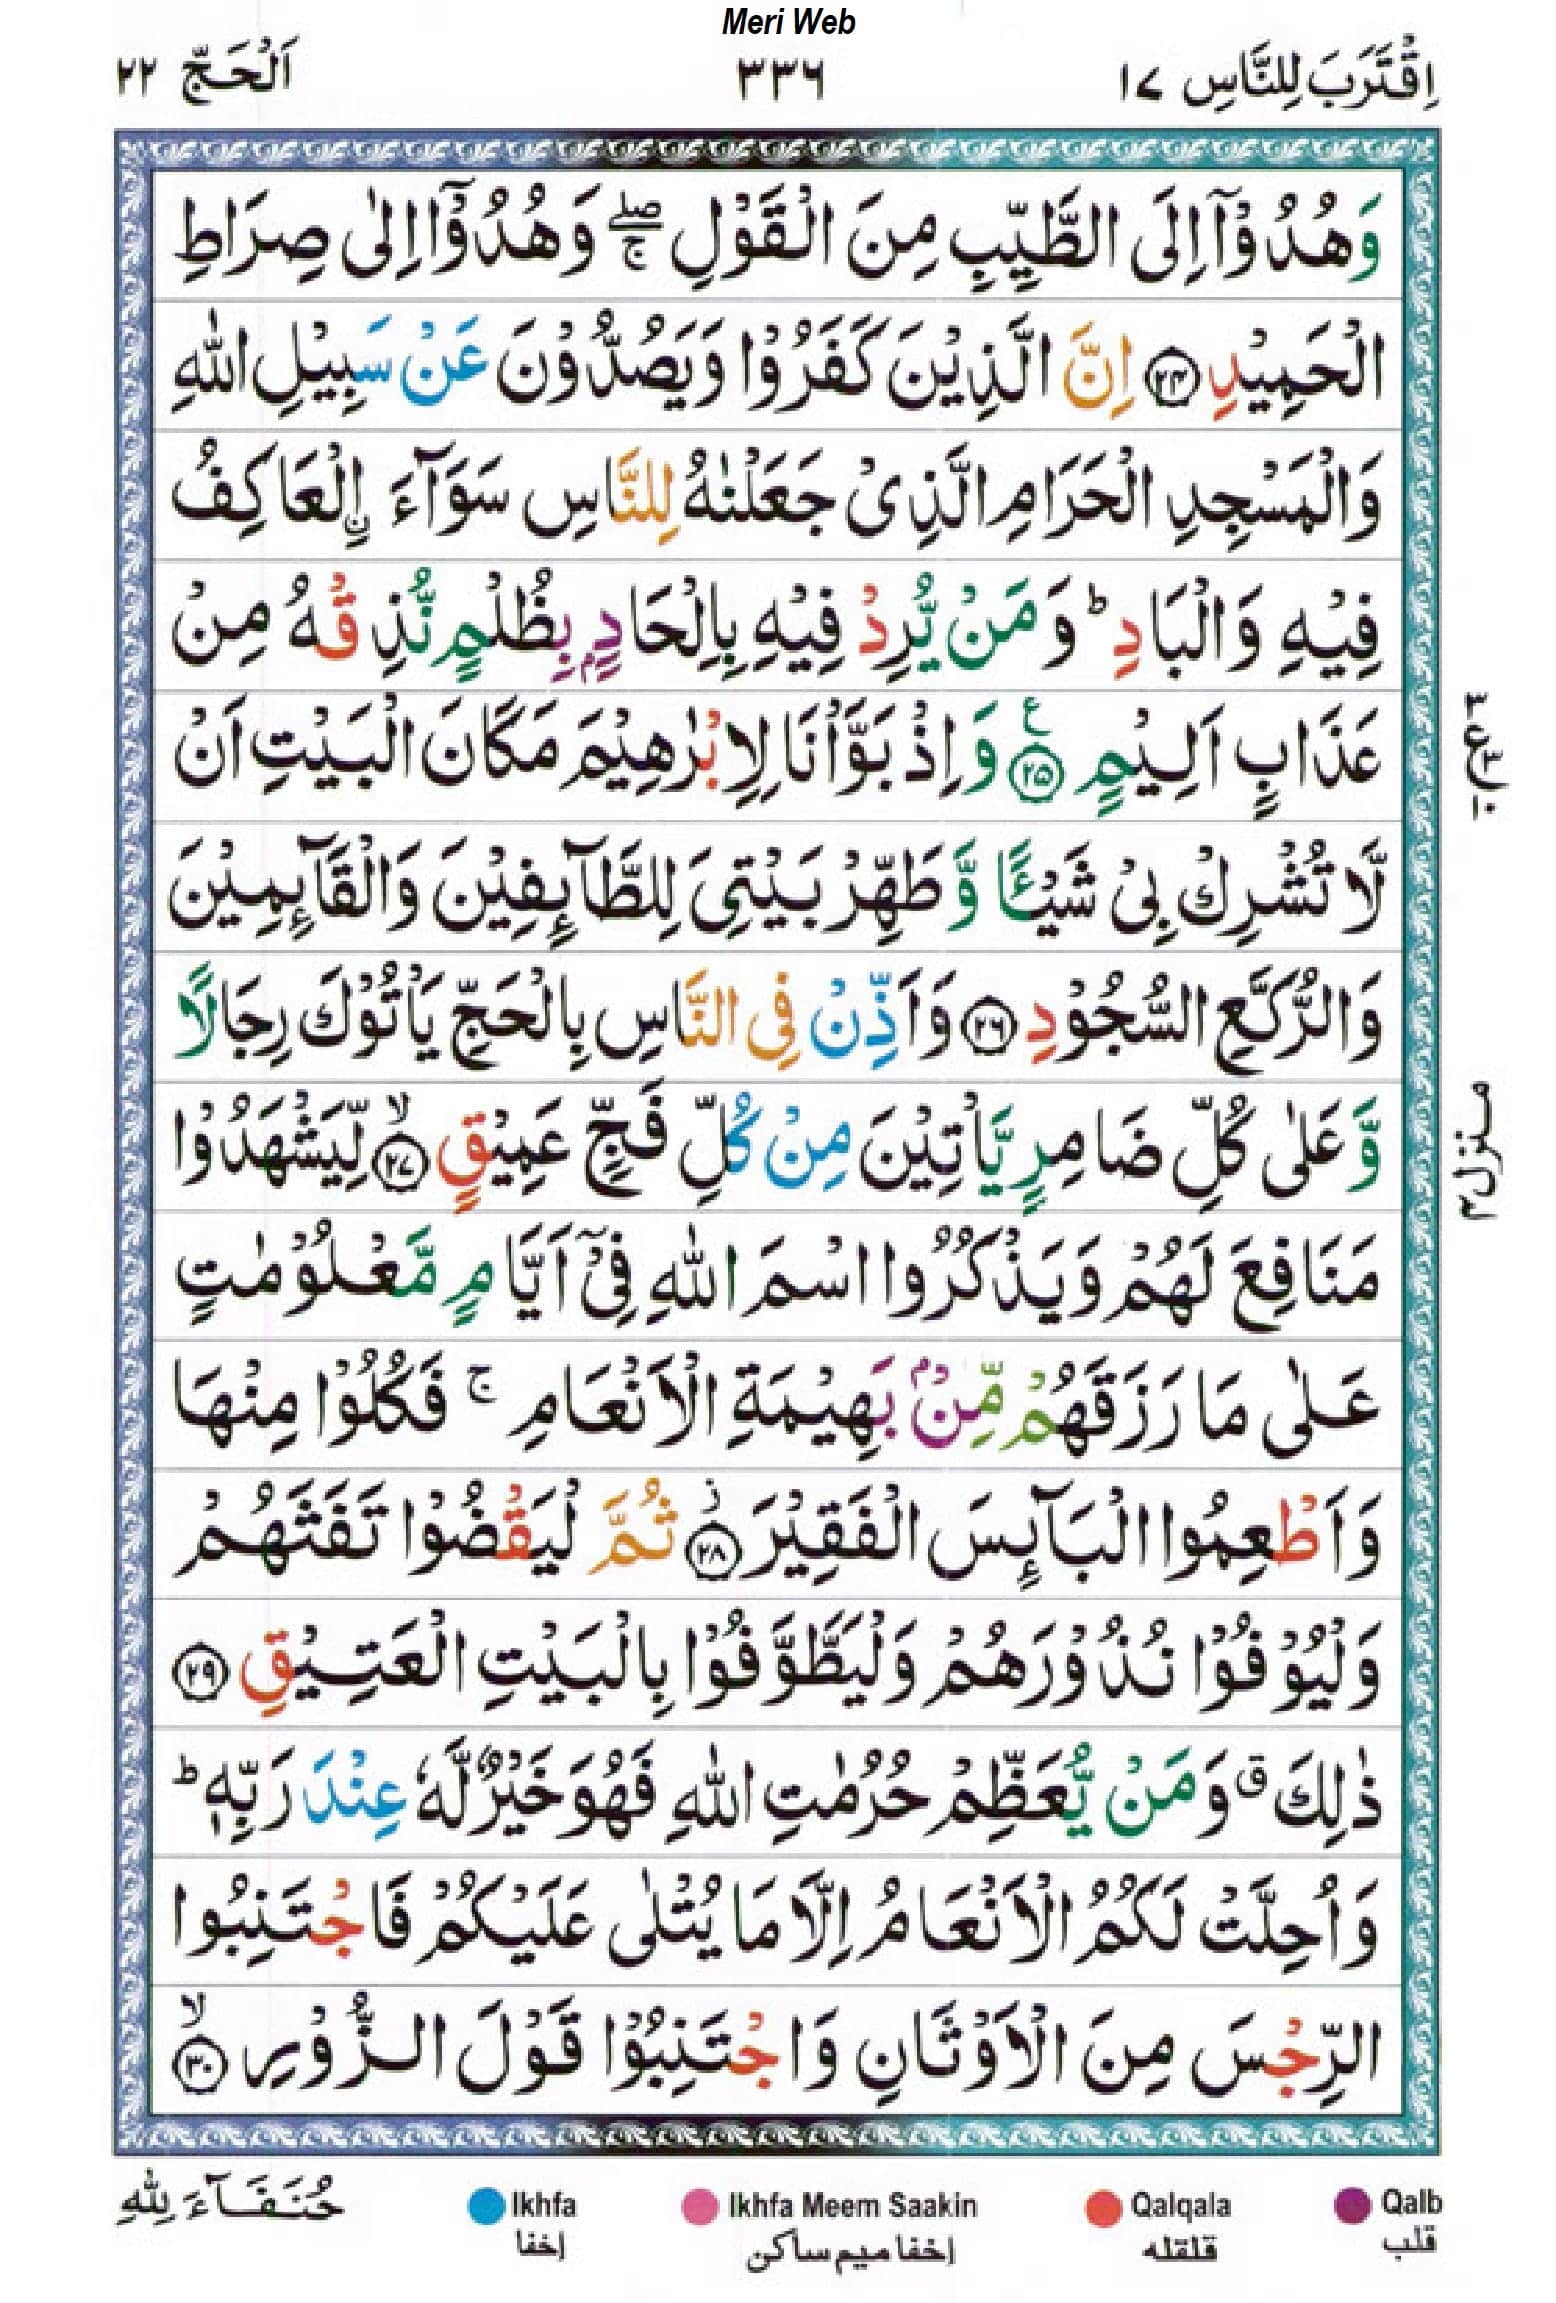 Meri Web
اِقْتَرَبَ لِلنَّاسِ ١٧
٣٣٦
اَلْحَجّ ٢٢
وَهُدُوْۤا اِلَى الطَّيِّبِ مِنَ الْقَوْلِ ۖۚ وَهُدُوْۤا اِلٰى صِرَاطِ
الْحَمِيْدِ ﴿۲۴﴾ اِنَّ الَّذِيْنَ كَفَرُوْا وَيَصُدُّوْنَ عَنْ سَبِيْلِ اللّٰهِ
وَالْمَسْجِدِ الْحَرَامِ الَّذِىْ جَعَلْنٰهُ لِلنَّاسِ سَوَآءَ ۨالْعَاكِفُ
فِيْهِ وَالْبَادِ ؕ وَمَنْ يُّرِدْ فِيْهِ بِاِلْحَادٍۭ بِظُلْمٍ نُّذِقْهُ مِنْ
عَذَابٍ اَلِيْمٍ ﴿۲۵﴾ ع وَاِذْ بَوَّاْنَا لِاِبْرٰهِيْمَ مَكَانَ الْبَيْتِ اَنْ
لَّا تُشْرِكْ بِىْ شَيْـًٔا وَّطَهِّرْ بَيْتِىَ لِلطَّآٮِٕفِيْنَ وَالْقَآٮِٕمِيْنَ
وَالرُّكَّعِ السُّجُوْدِ ﴿۲۶﴾ وَاَذِّنْ فِى النَّاسِ بِالْحَجِّ يَاْتُوْكَ رِجَالًا
وَّعَلٰى كُلِّ ضَامِرٍ يَّاْتِيْنَ مِنْ كُلِّ فَجٍّ عَمِيْقٍ ۙ﴿۲۷﴾ لِّيَشْهَدُوْا
مَنَافِعَ لَهُمْ وَيَذْكُرُوا اسْمَ اللّٰهِ فِىْۤ اَيَّامٍ مَّعْلُوْمٰتٍ
عَلٰى مَا رَزَقَهُمْ مِّنْۢ بَهِيْمَةِ الْاَنْعَامِ ۚ فَكُلُوْا مِنْهَا
وَاَطْعِمُوا الْبَآٮِٕسَ الْفَقِيْرَ ﴿۲۸﴾ ز ثُمَّ لْيَقْضُوْا تَفَثَهُمْ
وَلْيُوْفُوْا نُذُوْرَهُمْ وَلْيَطَّوَّفُوْا بِالْبَيْتِ الْعَتِيْقِ ﴿۲۹﴾
ذٰلِكَ ق وَمَنْ يُّعَظِّمْ حُرُمٰتِ اللّٰهِ فَهُوَ خَيْرٌ لَّهٗ عِنْدَ رَبِّهٖ ؕ
وَاُحِلَّتْ لَكُمُ الْاَنْعَامُ اِلَّا مَا يُتْلٰى عَلَيْكُمْ فَاجْتَنِبُوا
الرِّجْسَ مِنَ الْاَوْثَانِ وَاجْتَنِبُوْا قَوْلَ الزُّوْرِ ۙ﴿۳۰﴾
٣ ع ١٠
منزل ٣
حُنَفَآءَ لِلّٰهِ
Ikhfa
Ikhfa Meem Saakin
Qalqala
Qalb
إخفا
إخفا میم ساکن
قلقله
قلب